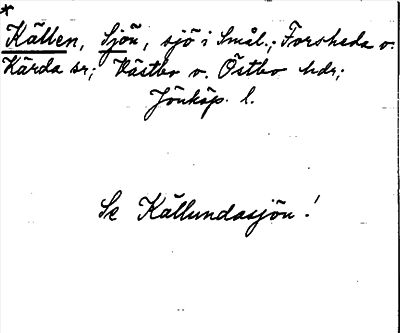 *
Källen, Sjön, sjö i Smål.; Forsheda o.
Kärda sr; Västbo o. Östbo hdr;
Jönköp. l.
Se Källundasjön!